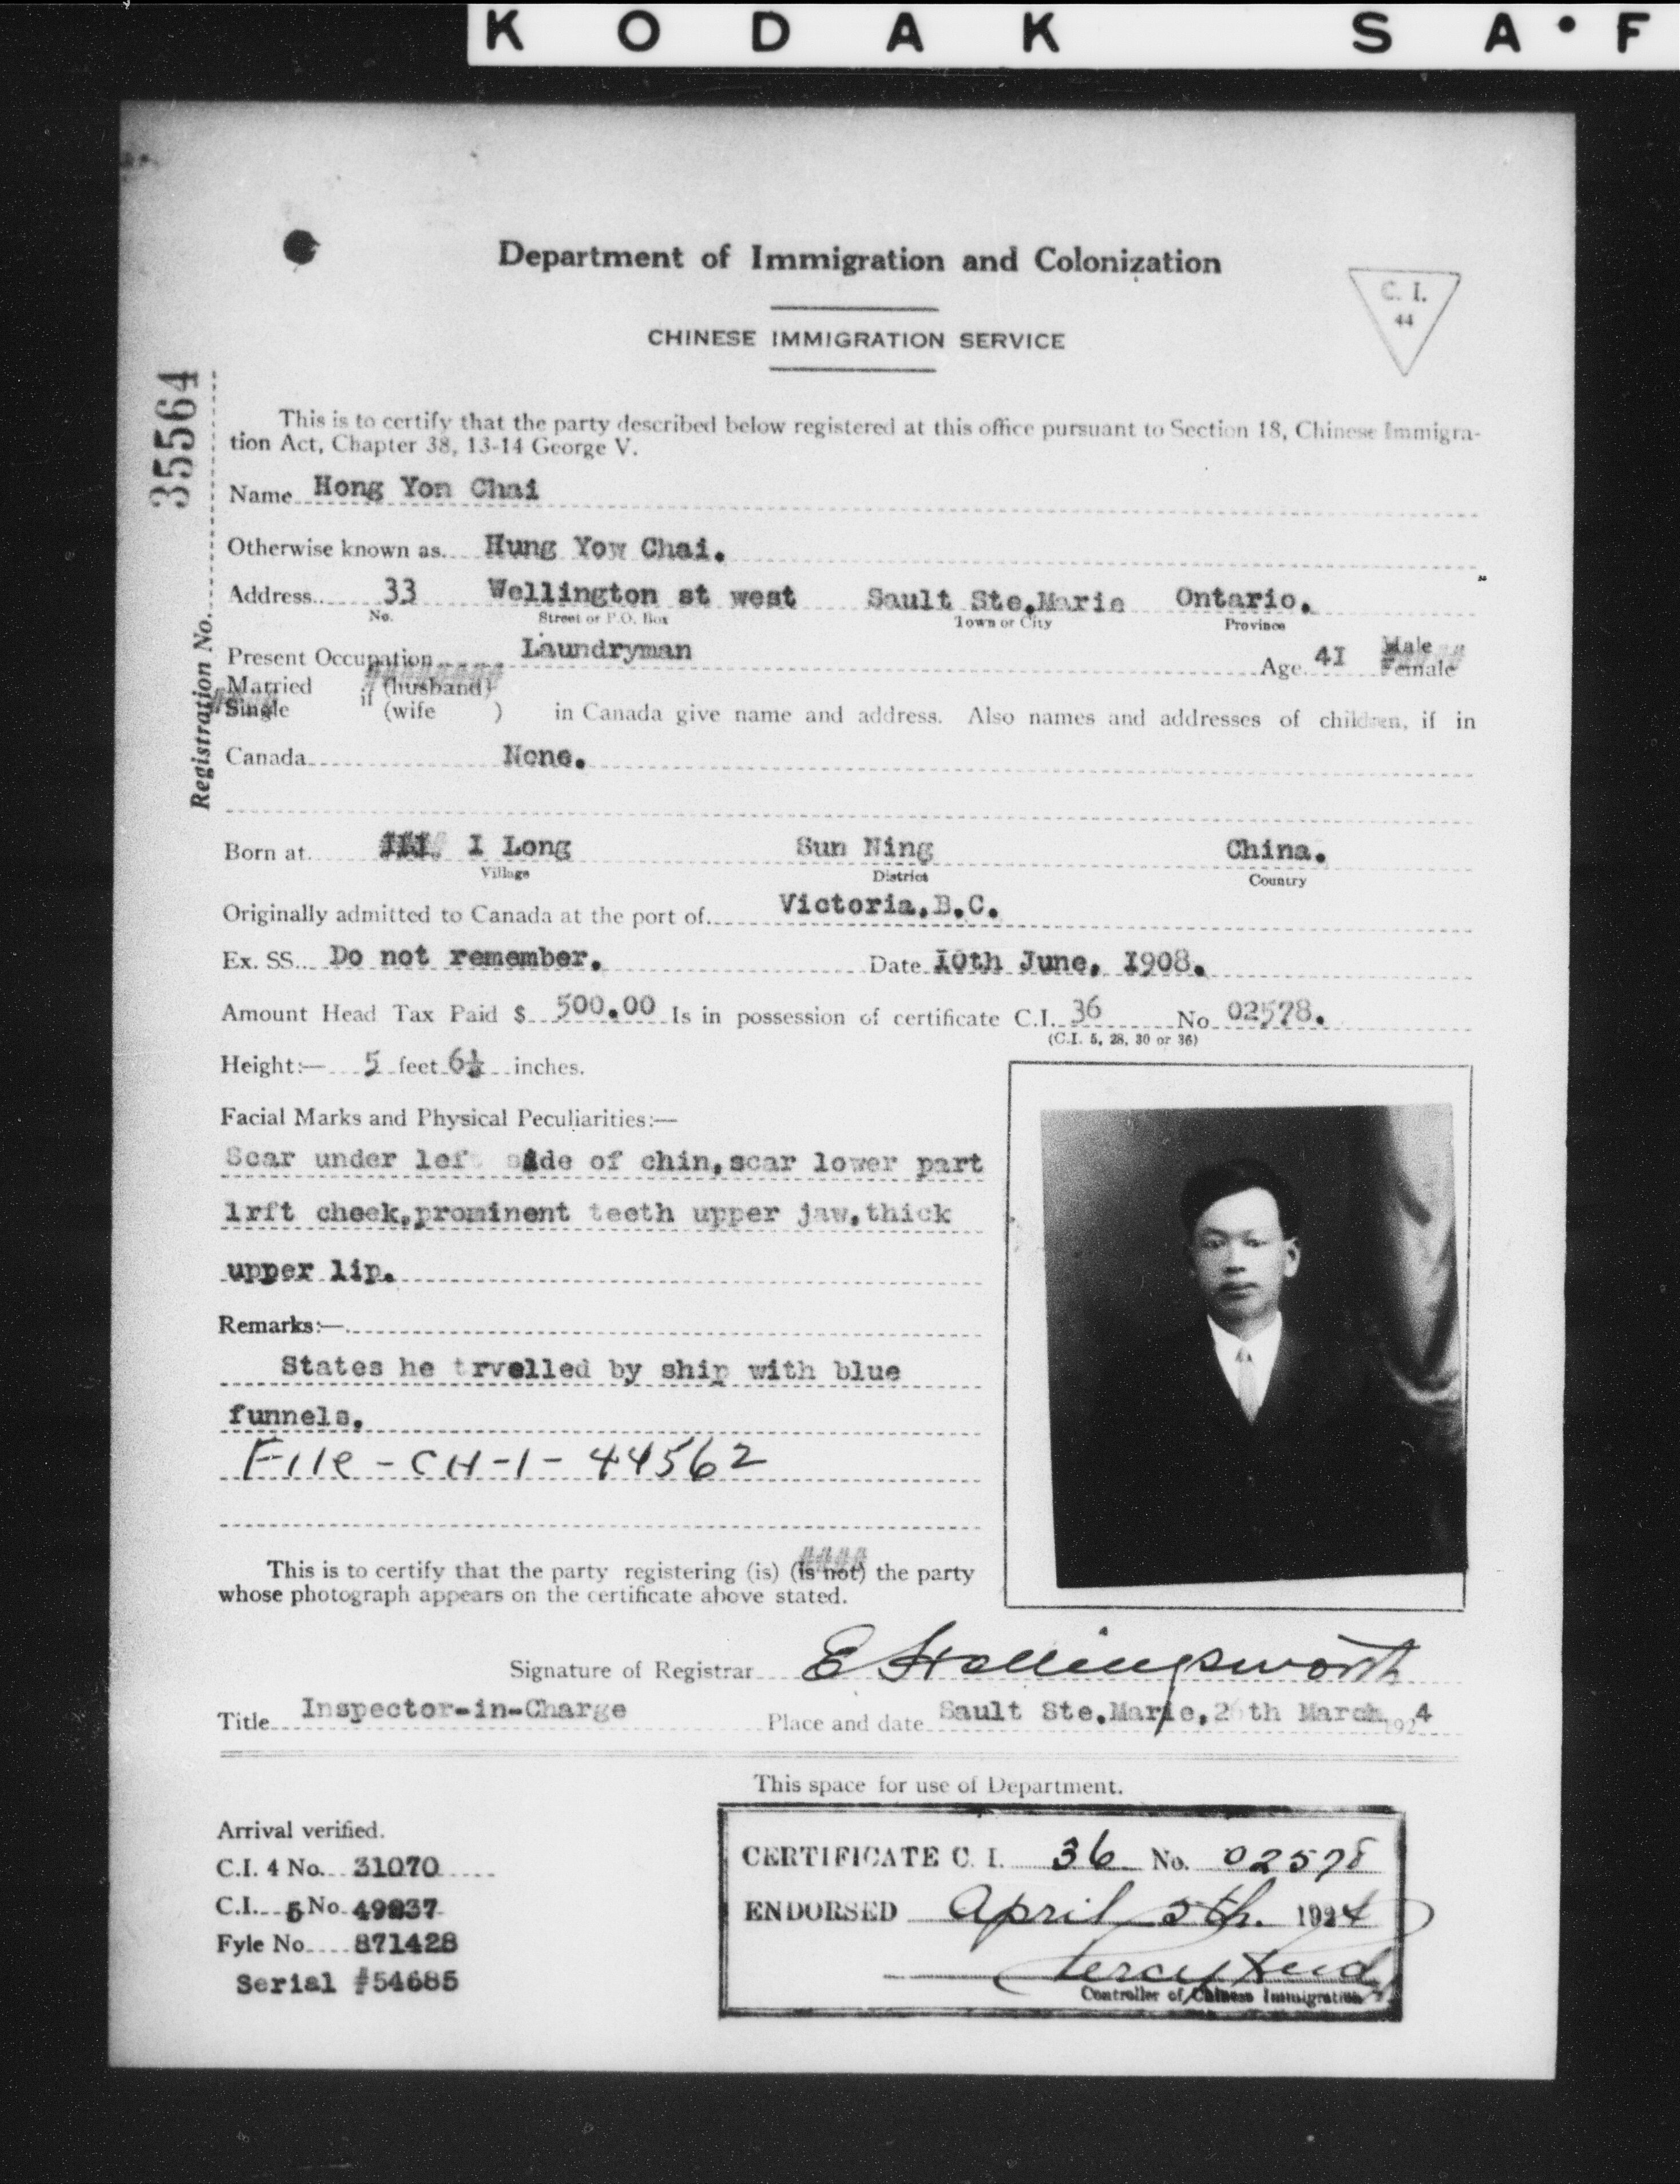 KODAK SA•F
Department of Immigration and Colonization
C. I.
44
CHINESE IMMIGRATION SERVICE
35564
Registration No.
This is to certify that the party described below registered at this office pursuant to Section 18, Chinese Immigra-
tion Act, Chapter 38, 13-14 George V.
Name Hong Yon Chai
Otherwise known as Hung Yow Chai.
Address 33 Wellington st west Sault Ste.Marie Ontario.
No. Street or P.O. Box Town or City Province
Present Occupation Laundryman Age 41 Male
Female
Married if (husband)
Single (wife ) in Canada give name and address. Also names and addresses of children, if in
Canada None.
Born at I Long Sun Ning China.
Village District Country
Originally admitted to Canada at the port of Victoria,B.C.
Ex. SS. Do not remember. Date 10th June, 1908.
Amount Head Tax Paid $ 500.00 Is in possession of certificate C.I. 36 No 02578.
(C.I. 5, 28, 30 or 36)
Height:— 5 feet 6½ inches.
Facial Marks and Physical Peculiarities:—
Scar under left side of chin,scar lower part
lrft cheek,prominent teeth upper jaw,thick
upper lip.
Remarks:—
States he trvelled by ship with blue
funnels.
File - CH-1- 44562
This is to certify that the party registering (is) (is not) the party
whose photograph appears on the certificate above stated.
Signature of Registrar E Hollingsworth
Title Inspector-in-Charge Place and date Sault Ste.Marie, th March 1924
This space for use of Department.
Arrival verified.
C.I. 4 No. 31070
C.I. 5 No. 49937
Fyle No. 871428
Serial #54685
CERTIFICATE C. I. 36 No. 02578
ENDORSED April 5th. 1924
Percy Reid
Controller of Chinese Immigration